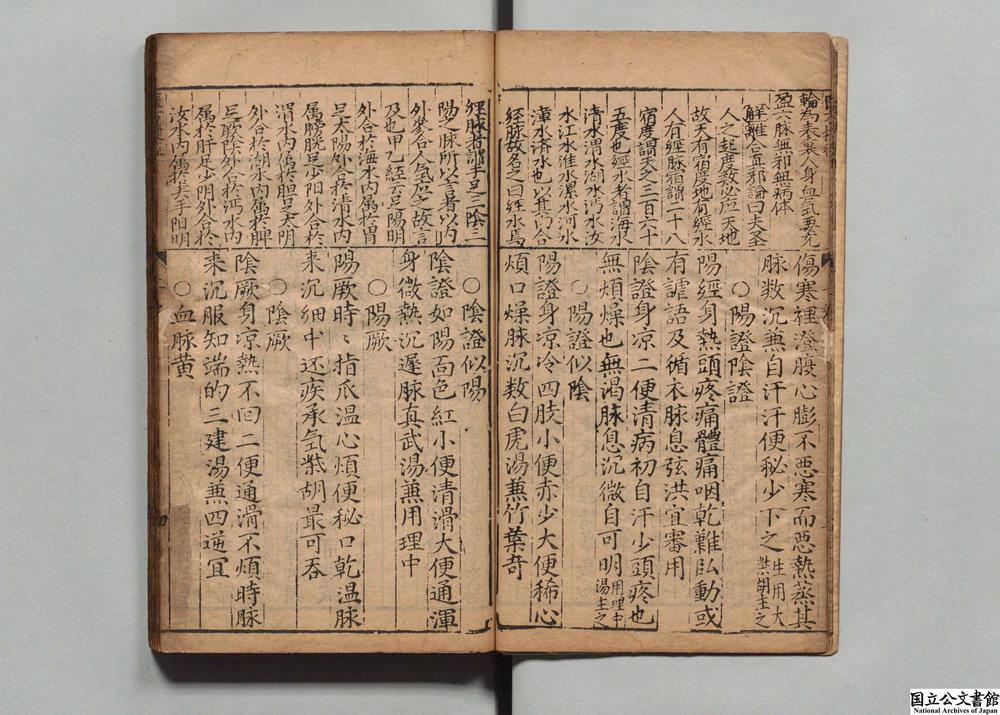 輪為表裏人身血氣要充
盈六脉無邪無病体
解離合真邪論曰夫圣
人之起度數必应天地
故天有宿度地有經水
人有經脉宿謂二十八
宿度謂天之三百六十
五度也經水者謂海水
清水渭水湖水沔水汝
水江水淮水漯水河水
漳水济水也以其内合
經脉故名之曰經水焉
傷寒裡澄腹心膨不悪寒而悪熱蒸其
脉数沉兼自汗汗便秘少下之生用大
柴胡主之
○陽證陰證
陽經身熱頭疼痛體痛咽乾難臥動或
有譃語及循衣脉息弦洪宜審用
陰證身凉二便清病初自汗少頭疼也
無煩燥也無渴脉息沉微自可明用理中
湯主之
○陽證似陰
陽證身凉冷四肢小便赤少大便稀心
煩口燥脉沉数白虎湯兼竹葉奇
經脉者謂手足三陰三
陽之脉所以言者以内
外參合人氣应之故言
及也甲乙經云足陽明
外合於海水内属於胃
足太陽外合於清水内
属膀胱足少阳外合於
渭水内属於胆足太阴
外合於湖水内属於脾
足厥阴外合於沔水内
属於肝足少阴外合於
汝水内属於 手阳明
○陰證似陽
陰證如陽靣色紅小便清滑大便通渾
身微熱沉遲脉真武湯兼用理中
○陽厥
陽厥時〻指爪温心煩便秘口乾温脉
来沉细中还疾承气柴胡最可吞
○陰厥
陰厥身凉熱不回二便通滑不煩時脉
来沉服知端的三建湯兼四逆宜
○血脉黄
国立公文書館
National Archives of Japan